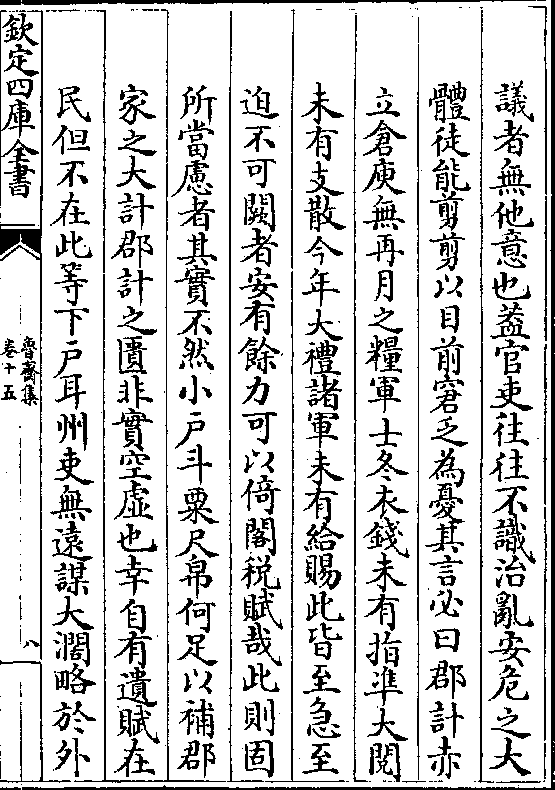 議者無他意也葢官吏往往不識治亂安危之大
體徒能剪剪以目前窘乏為憂其言必曰郡計赤
立倉庾無再月之糧軍士冬衣錢未有指準大閱
未有支散今年大禮諸軍未有給賜此皆至急至
迫不可闕者安有餘力可以倚閣税賦哉此則固
所當慮者其實不然小戸斗粟尺帛何足以補郡
家之大計郡計之匱非實空虛也幸自有遺賦在
民但不在此等下戸耳州吏無遠謀大濶略於外
欽定四庫全書
魯齋集
卷十五
八